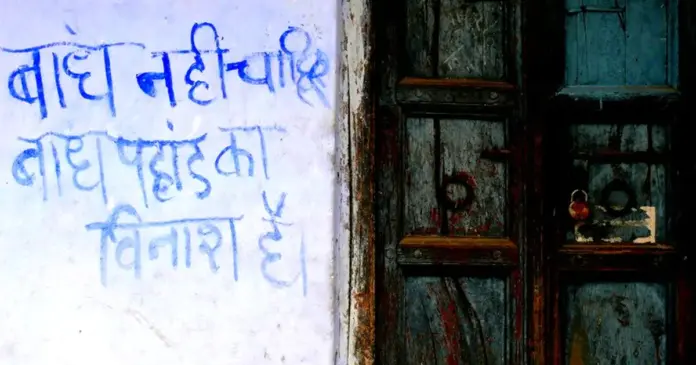 बांध नहीं चाहिए
बांध पहांड का
विनाश है।